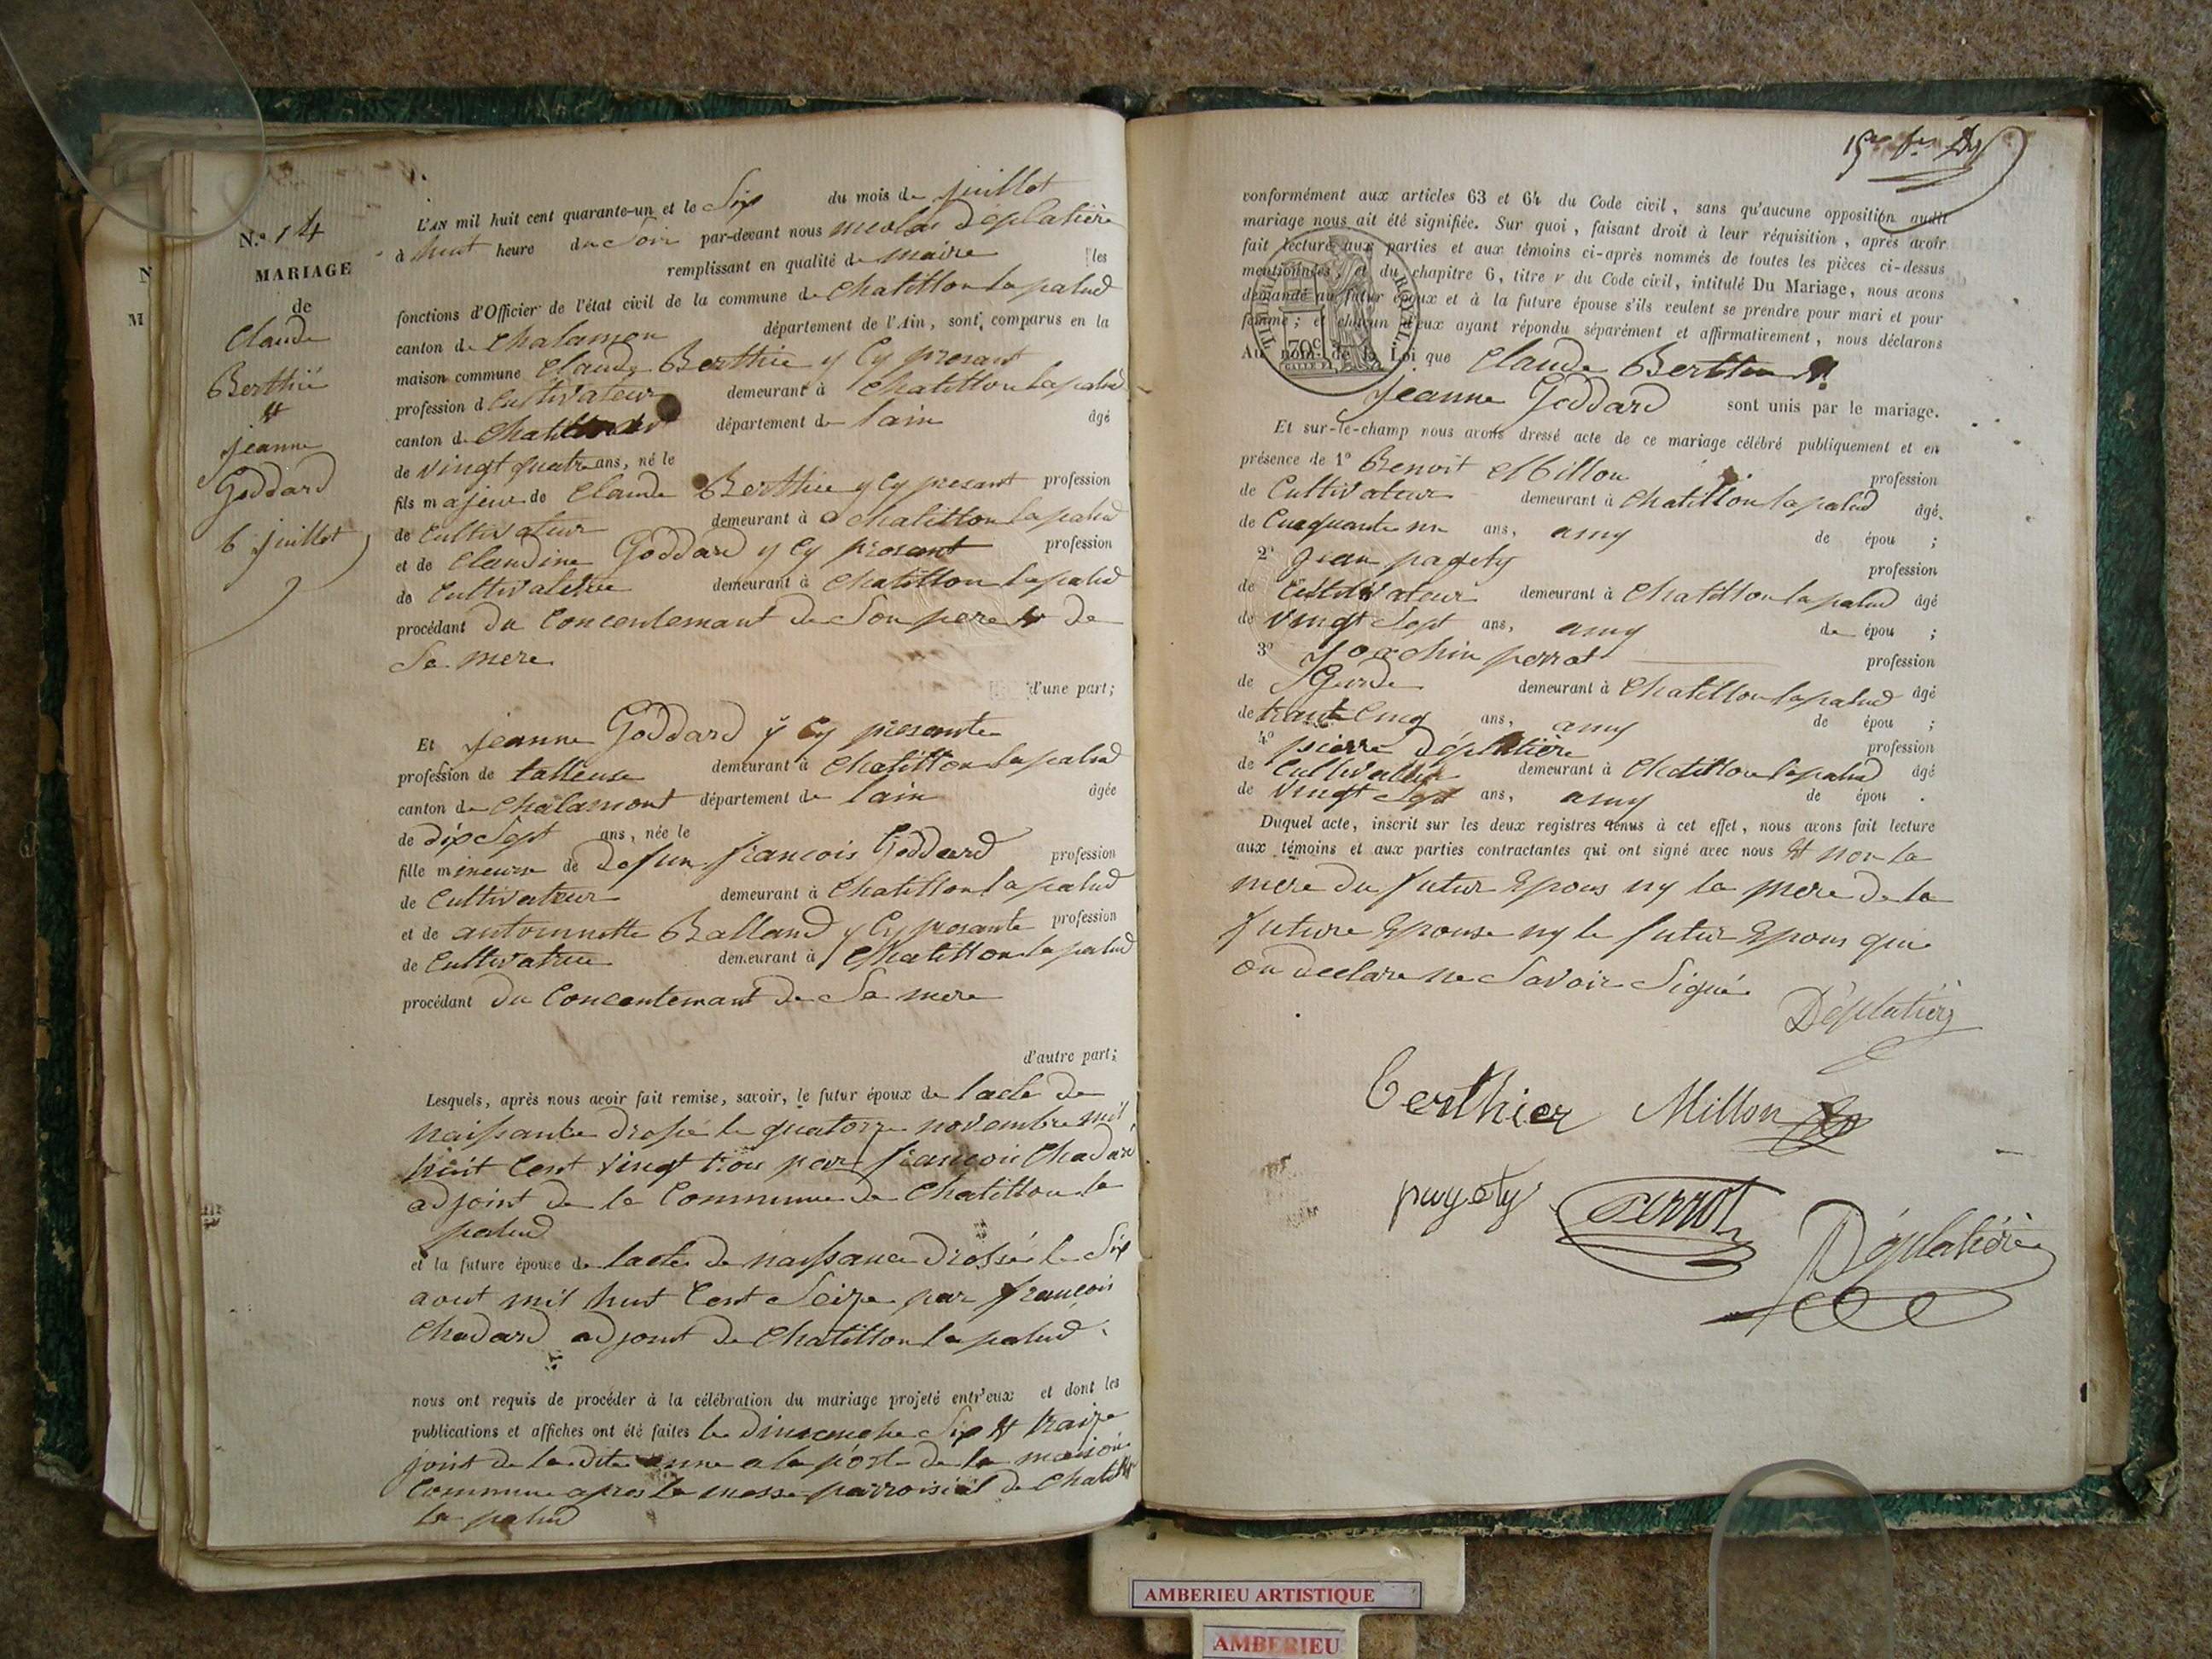 N.° 14
MARIAGE
de
Claude
Berthié
et
jeanne
Goddard
6 juillet
N
M
L'AN mil huit cent quarante-un et le Six du mois de juillet
à huit heure du Soir par-devant nous nicolas Déplatière
remplissant en qualité de maire les
fonctions d'Officier de l'état civil de la commune de Chatillon la palud
canton de Chalamon département de l'Ain, sont comparus en la
maison commune Claude Berthie y Cy presant
profession d Cultivateur demeurant à Chatillon la palud
canton de département de lain âgé
de vingt quatre ans, né le
fils majeur de Claude Berthie y Cy presant profession
de Cultivateur demeurant à Chatillon la palud
et de Claudine Goddard y Cy presant profession
de Cultivatrice demeurant à Chatillon la palud
procédant du Concentemant de Son pere et de
Sa mere
d'une part;
Et jeanne Goddard y Cy presante
profession de talleuse demeurant à Chatillon la palud
canton de Chalamont département de lain âgée
de dix Sept ans, née le
fille mineure de Defun françois Goddard profession
de Cultivateur demeurant à Chatillon la palud
et de antoinnette Balland y Cy presante profession
de Cultivatrice demeurant à Chatillon la palud
procédant du Concentemant de Sa mere
d'autre part;
Lesquels, après nous avoir fait remise, savoir, le futur époux de lacte de
naissance le quatorze novembre mil
huit Cent vingt trois par françois Chadard
adjoint de la Commune de Chatillon la
palud
et la future épouse de lacte de naissance Dressé le Six
aout mil huit Cent Seize par françois
Chadard adjoint de Chatillon la palud
nous ont requis de procéder à la célébration du mariage projeté entr'eux et dont les
publications et affiches ont été faites le Dimenche Six et traize
de la dite anne a la porte de la maison
Commune apres la messe parroisial de Chatillon
la palud
conformément aux articles 63 et 64 du Code civil, sans qu'aucune opposition audit
mariage nous ait été signifiée. Sur quoi, faisant droit à leur réquisition, après avoir
fait lecture aux parties et aux témoins ci-après nommés de toutes les pièces ci-dessus
mentionnées, et du chapitre 6, titre v du Code civil, intitulé Du Mariage, nous avons
demandé au futur époux et à la future épouse s'ils veulent se prendre pour mari et pour
femme; et chacun d'eux ayant répondu séparément et affirmativement, nous déclarons
Au nom de la Loi que Claude Berthie et
TIMBRE ROYAL
70c
jeanne Goddard sont unis par le mariage.
Et sur-le-champ nous avons dressé acte de ce mariage célébré publiquement et en
présence de 1° Benoit Millon profession
de Cultivateur demeurant à Chatillon la palud âgé
de Cinquante un ans, amy de épou ;
2° jean pagety profession
de Cultivateur demeurant à Chatillon la palud âgé
de vingt Sept ans, amy de épou ;
3° joachin perrot profession
de Garde demeurant à Chatillon la palud âgé
de trante Cinq ans, amy de épou ;
4° pierre Déplatière profession
de Cultivateur demeurant à Chatillon la palud âgé
de vingt Sept ans, amy de épou .
Duquel acte, inscrit sur les deux registres tenus à cet effet, nous avons fait lecture
aux témoins et aux parties contractantes qui ont signé avec nous et non la
mere du futur Epous ny la mere de la
future Epouse ny le futur Epous qui
on declare ne Savoir Signé
Déplatière
berthier Millon
pugety perrot
Déplatière
AMBERIEU ARTISTIQUE
AMBERIEU